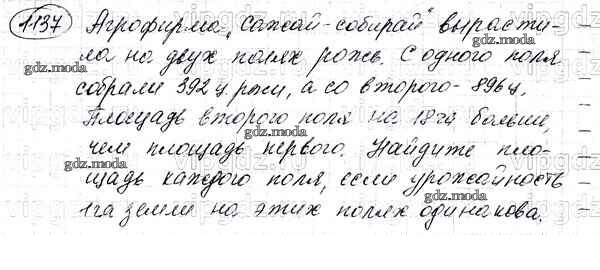 1137 Агрофирма „Сажай-собирай" вырасти-
ла на двух полях рожь. С одного поля
собрали 392ц ржи, а со второго - 896ц.
Площадь второго поля на 18га больше,
чем площадь первого. Найдите пло-
щадь каждого поля, если урожайность
1га земли на этих полях одинакова.
gdz.moda
gdz.moda
gdz.moda
gdz.moda
gdz.moda
gdz.moda
gdz.moda
gdz.moda
gdz.moda